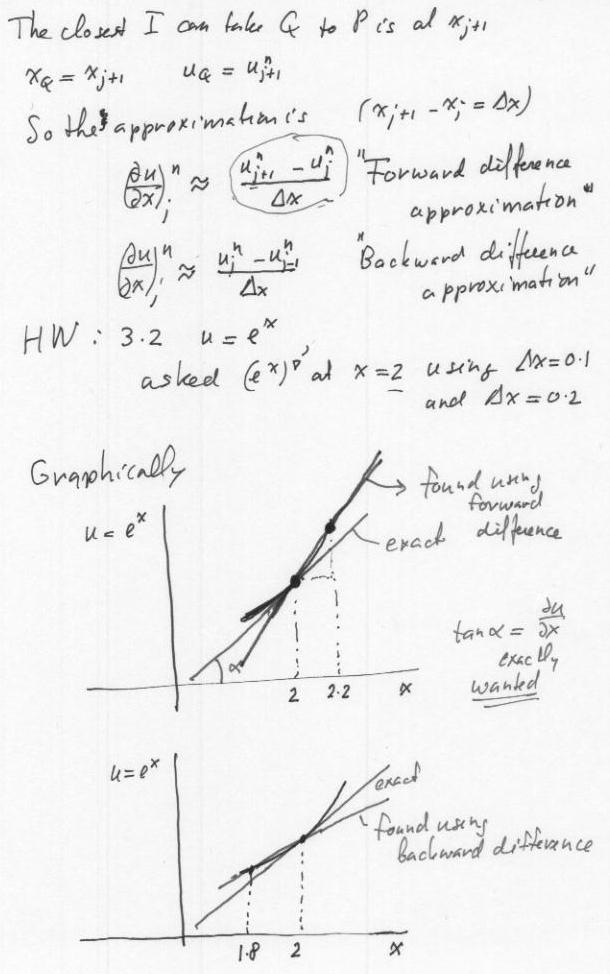 The closest I can take Q to P is at x_{j+1}
x_Q = x_{j+1} u_Q = u^n_{j+1}
So the approximation is (x_{j+1} - x_j = Δx)
∂u/∂x)^n_j ≈ (u^n_{j+1} - u^n_j)/Δx "Forward difference
approximation"
∂u/∂x)^n_j ≈ (u^n_j - u^n_{j-1})/Δx "Backward difference
approximation"
HW : 3.2 u = e^x
asked (e^x)' at x = 2 using Δx=0.1
and Δx = 0.2
Graphically
found using
forward
difference
u = e^x
exact
α
tanα = ∂u/∂x
exactly
wanted
2 2.2 x
u = e^x
exact
found using
backward difference
1.8 2 x